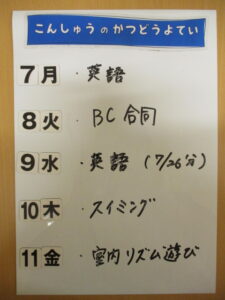 こんしゅうのかつどうよてい
7 月 ・英語
8 火 ・BC合同
9 水 ・英語(7/26分)
10 木 ・スイミング
11 金 ・室内リズム遊び